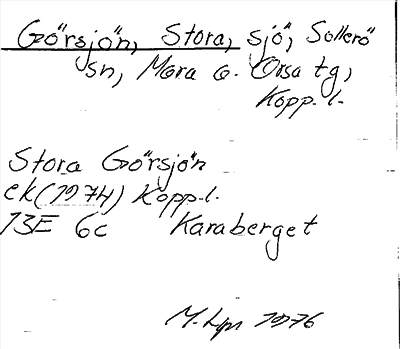 Görsjön, Stora, sjö, Sollerö
sn, Mora o. Orsa tg,
Kopp. l.
Stora Görsjön
ek (1974) Kopp. l.
13E 6c Karaberget
1976